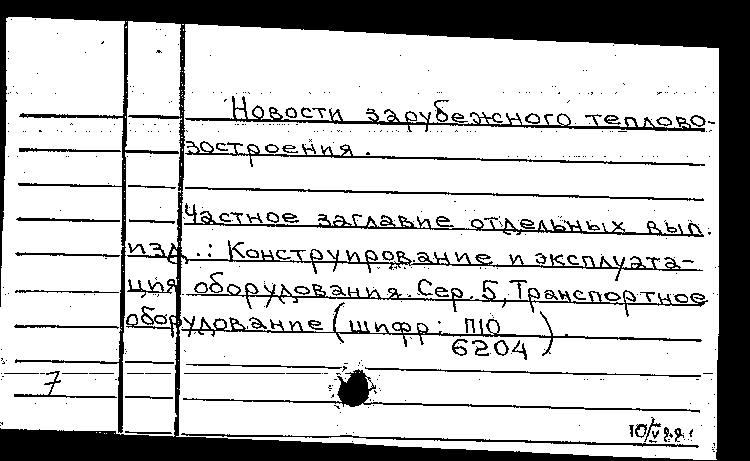 Новости зарубежного теплово-
зостроения.
Частное заглавие отдельных вып.
изд.: Конструирование и эксплуата-
ция оборудования. Сер. 5, Транспортное
оборудование (шифр: П10
6204).
7
10/V 88